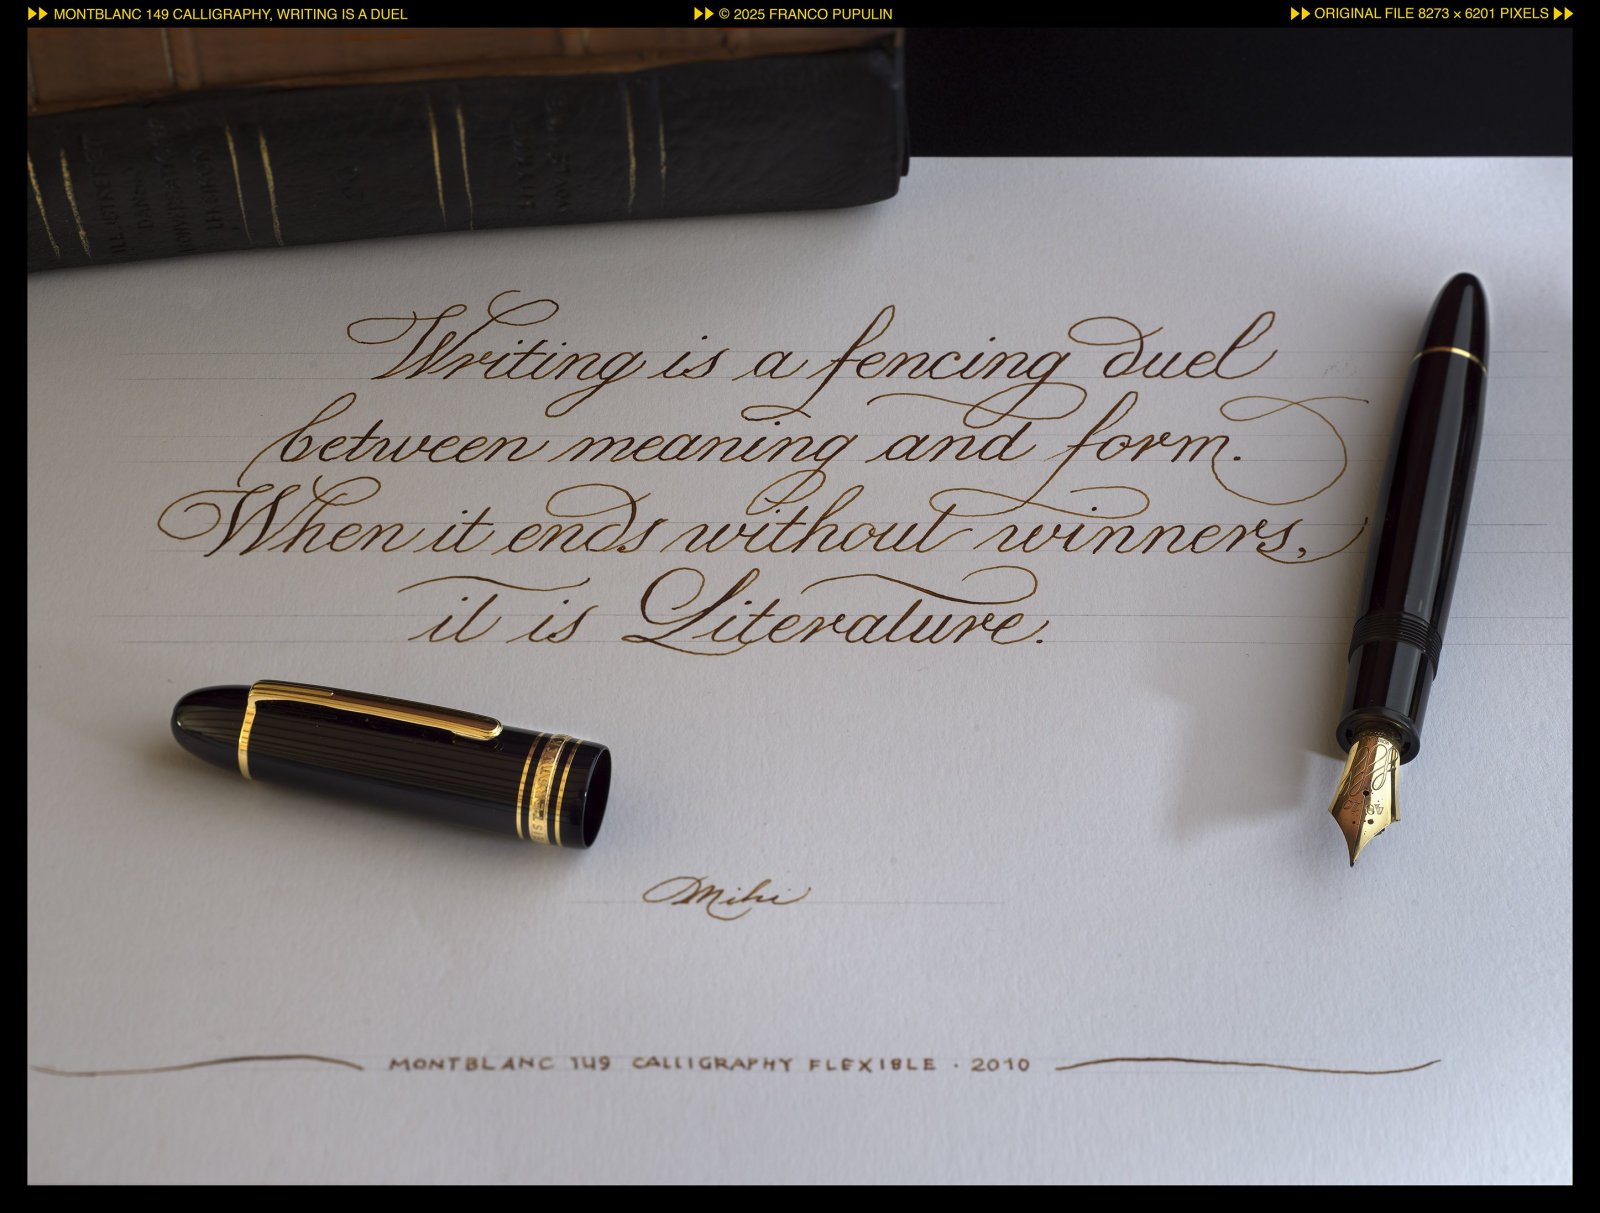 MONTBLANC 149 CALLIGRAPHY, WRITING IS A DUEL
© 2025 FRANCO PUPULIN
ORIGINAL FILE 8273 × 6201 PIXELS
Writing is a fencing duel
between meaning and form.
When it ends without winners,
it is Literature.
Mihi
MONTBLANC 149 CALLIGRAPHY FLEXIBLE · 2010